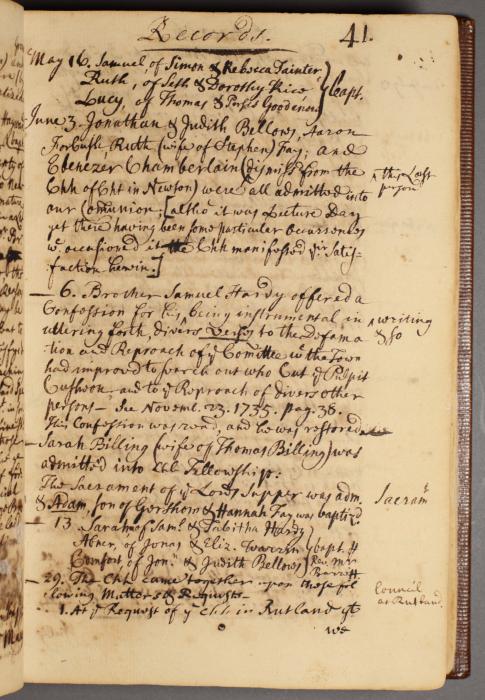 Records. 41.
May 16. Samuel, of Simon & Rebecca Tainter
Ruth, of Seth & Dorothy Rice } bapt.
Lucy, of Thomas & Persis Goodenow
June 3. Jonathan & Judith Bellows, Aaron
Forbush, Ruth (wife of Stephen) Fay; and
Ebenezer Chamberlain (dismiss'd from the
Chh of Cht in Newton) were all admitted into ^ this last person
our Communion; [altho it was Lecture Day
yet there having been some particular occurrences
wc occasioned it the Chh manifested yr Satis-
faction herein.]
— 6. Brother Samuel Hardy offered a
Confession for his being instrumental in ^ writing & so
uttering forth, divers Verses to the Defama
tion and Reproach of ye Comittee wm the Town
had improv'd to search out who Cut ye Pulpit
Cusheon, and to ye Reproach of divers other
persons — See Novemb. 23. 1735. pag. 36.
This Confession was read, and he was restored
Sarah Billing (wife of Thomas Billing) was
admitted into Chh Fellowship.
The Sacrament of ye Lords Supper was adm. Sacramt
& Adam, son of Gershom & Hannah Fay was baptiz'd.
— 13 Sarah of Saml & Tabitha Hardy
Abner, of Jonas & Eliz. } bapt.
Comfort of Jonn & Judith Bellows Revd Mr Barrett
— 29. The Chh came together upon those fol
lowing Matters & Requests Council at Rutland
1. At ye Request of ye Chh in Rutland yt
we